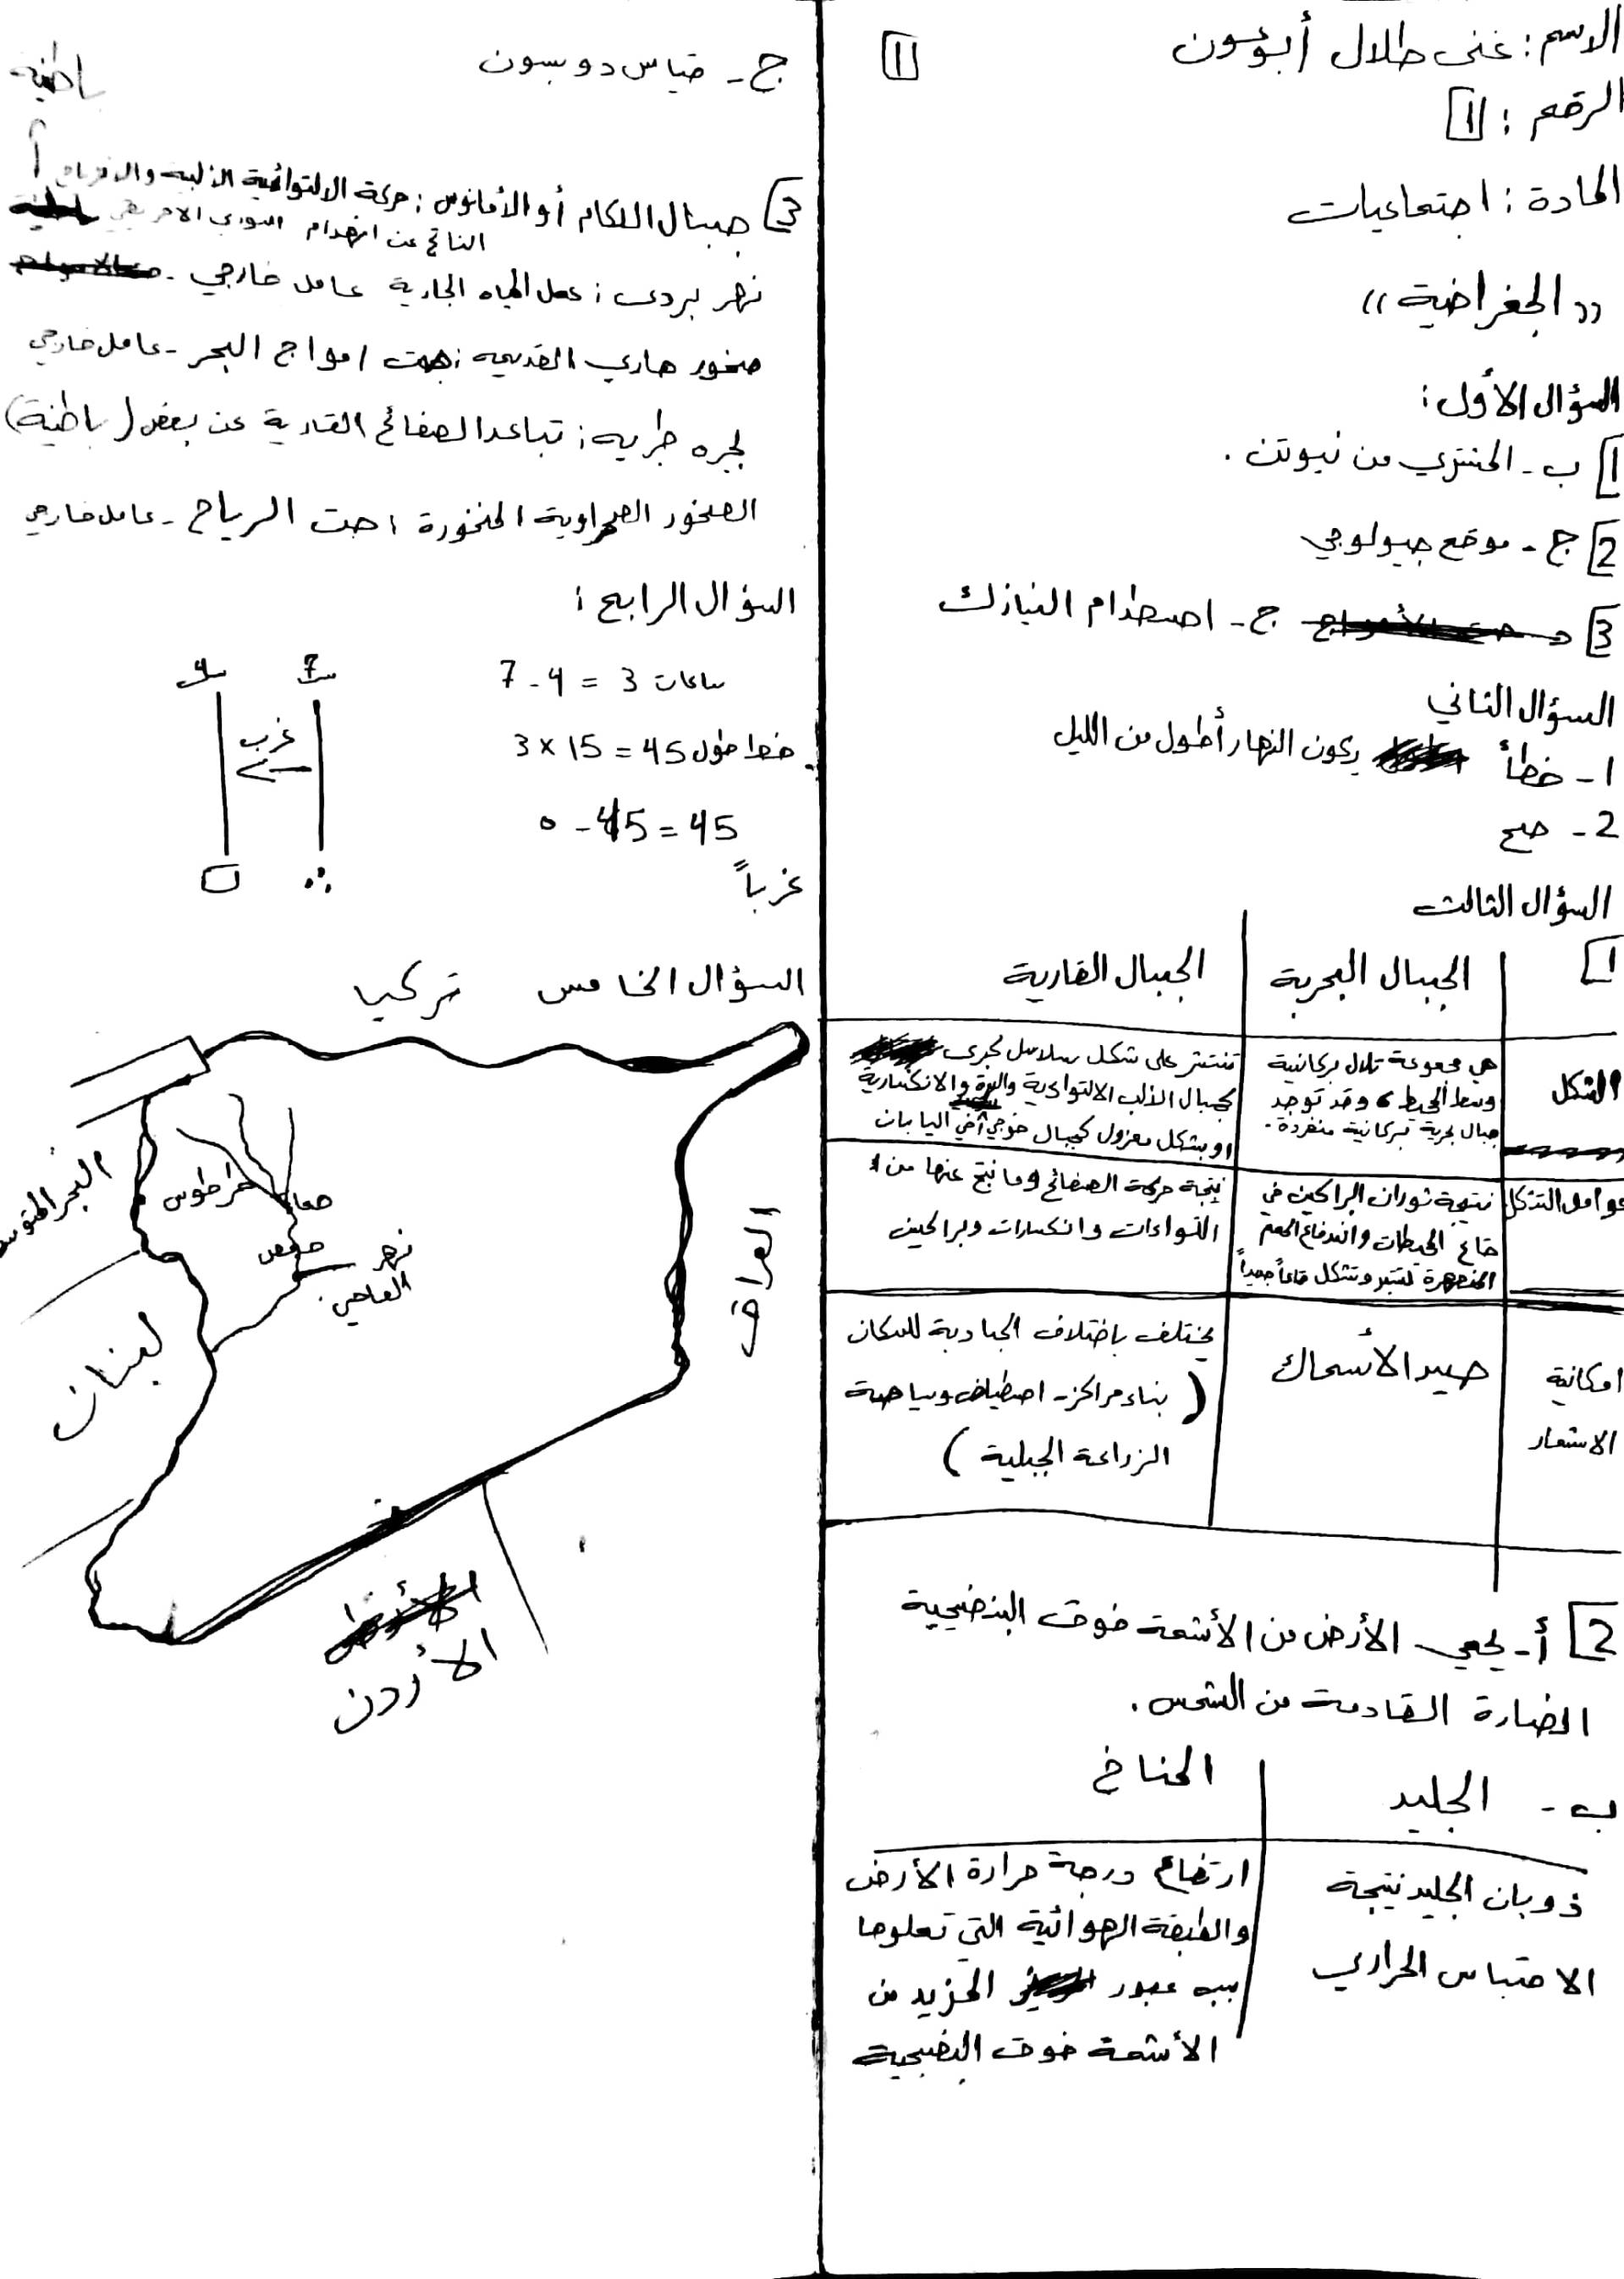 الاسم: غنى طلال أبوعون
1
الرقم: 1
المادة: اجتماعيات
((الجغرافية))
السؤال الأول:
1 ب - المشتري من نيوتن.
2 ج - موقع جيولوجي
3 ج - اصطدام النيازك
السؤال الثاني
1 - خطأ يكون النهار أطول من الليل
2 - صح
السؤال الثالث
1 الجبال البحرية الجبال القارية
الشكل
هي مجموعة تلال بركانية
وسط المحيط، وقد توجد
جبال بحرية بركانية منفردة.
تنتشر على شكل سلاسل كبرى
كجبال الألب الالتوائية والانكسارية
او بشكل معزول كجبال فوجي في اليابان
عوامل التشكل
نتيجة ثوران البراكين في
قاع المحيطات واندفاع الحمم
المنصهرة لتبرد وتشكل قاعاً جديداً
نتيجة حركة الصفائح وما نتج عنها من
التواءات وانكسارات وبراكين
امكانية
الاستثمار
صيد الأسماك
يختلف باختلاف الجاذبية للسكان
(بناء مراكز - اصطياف وسياحة
الزراعة الجبلية)
2 أ - يحمي الأرض من الأشعة فوق البنفسجية
الضارة القادمة من الشمس.
ب - الجليد المناخ
ذوبان الجليد نتيجة
الاحتباس الحراري
ارتفاع درجة حرارة الأرض
والطبقة الهوائية التي تعلوها
عبور المزيد من
الأشعة فوق البنفسجية
ج - قياس دوبسون
باطنية
3 جبال اللكام أو الأمانوس: حركة الالتوائية الألبية
الناتج عن انهدام السوري الافريقي
نهر بردى: عمل المياه الجارية عامل خارجي -
صخور هاري القديمه: حت امواج البحر - عامل خارجي
طبريه: تباعد الصفائح القارية عن بعض (باطنية)
الصخور الصحراوية المنخورة: حت الرياح - عامل خارجي
السؤال الرابع:
7 - 4 = 3 ساعات
3 × 15 = 45 خط طول
0 - 45 = 45
غرباً
س7 س4
غرب
السؤال الخامس
تركيا
البحر المتوسط
طرطوس
حماة
حمص
نهر
العاصي
العراق
لبنان
الأردن